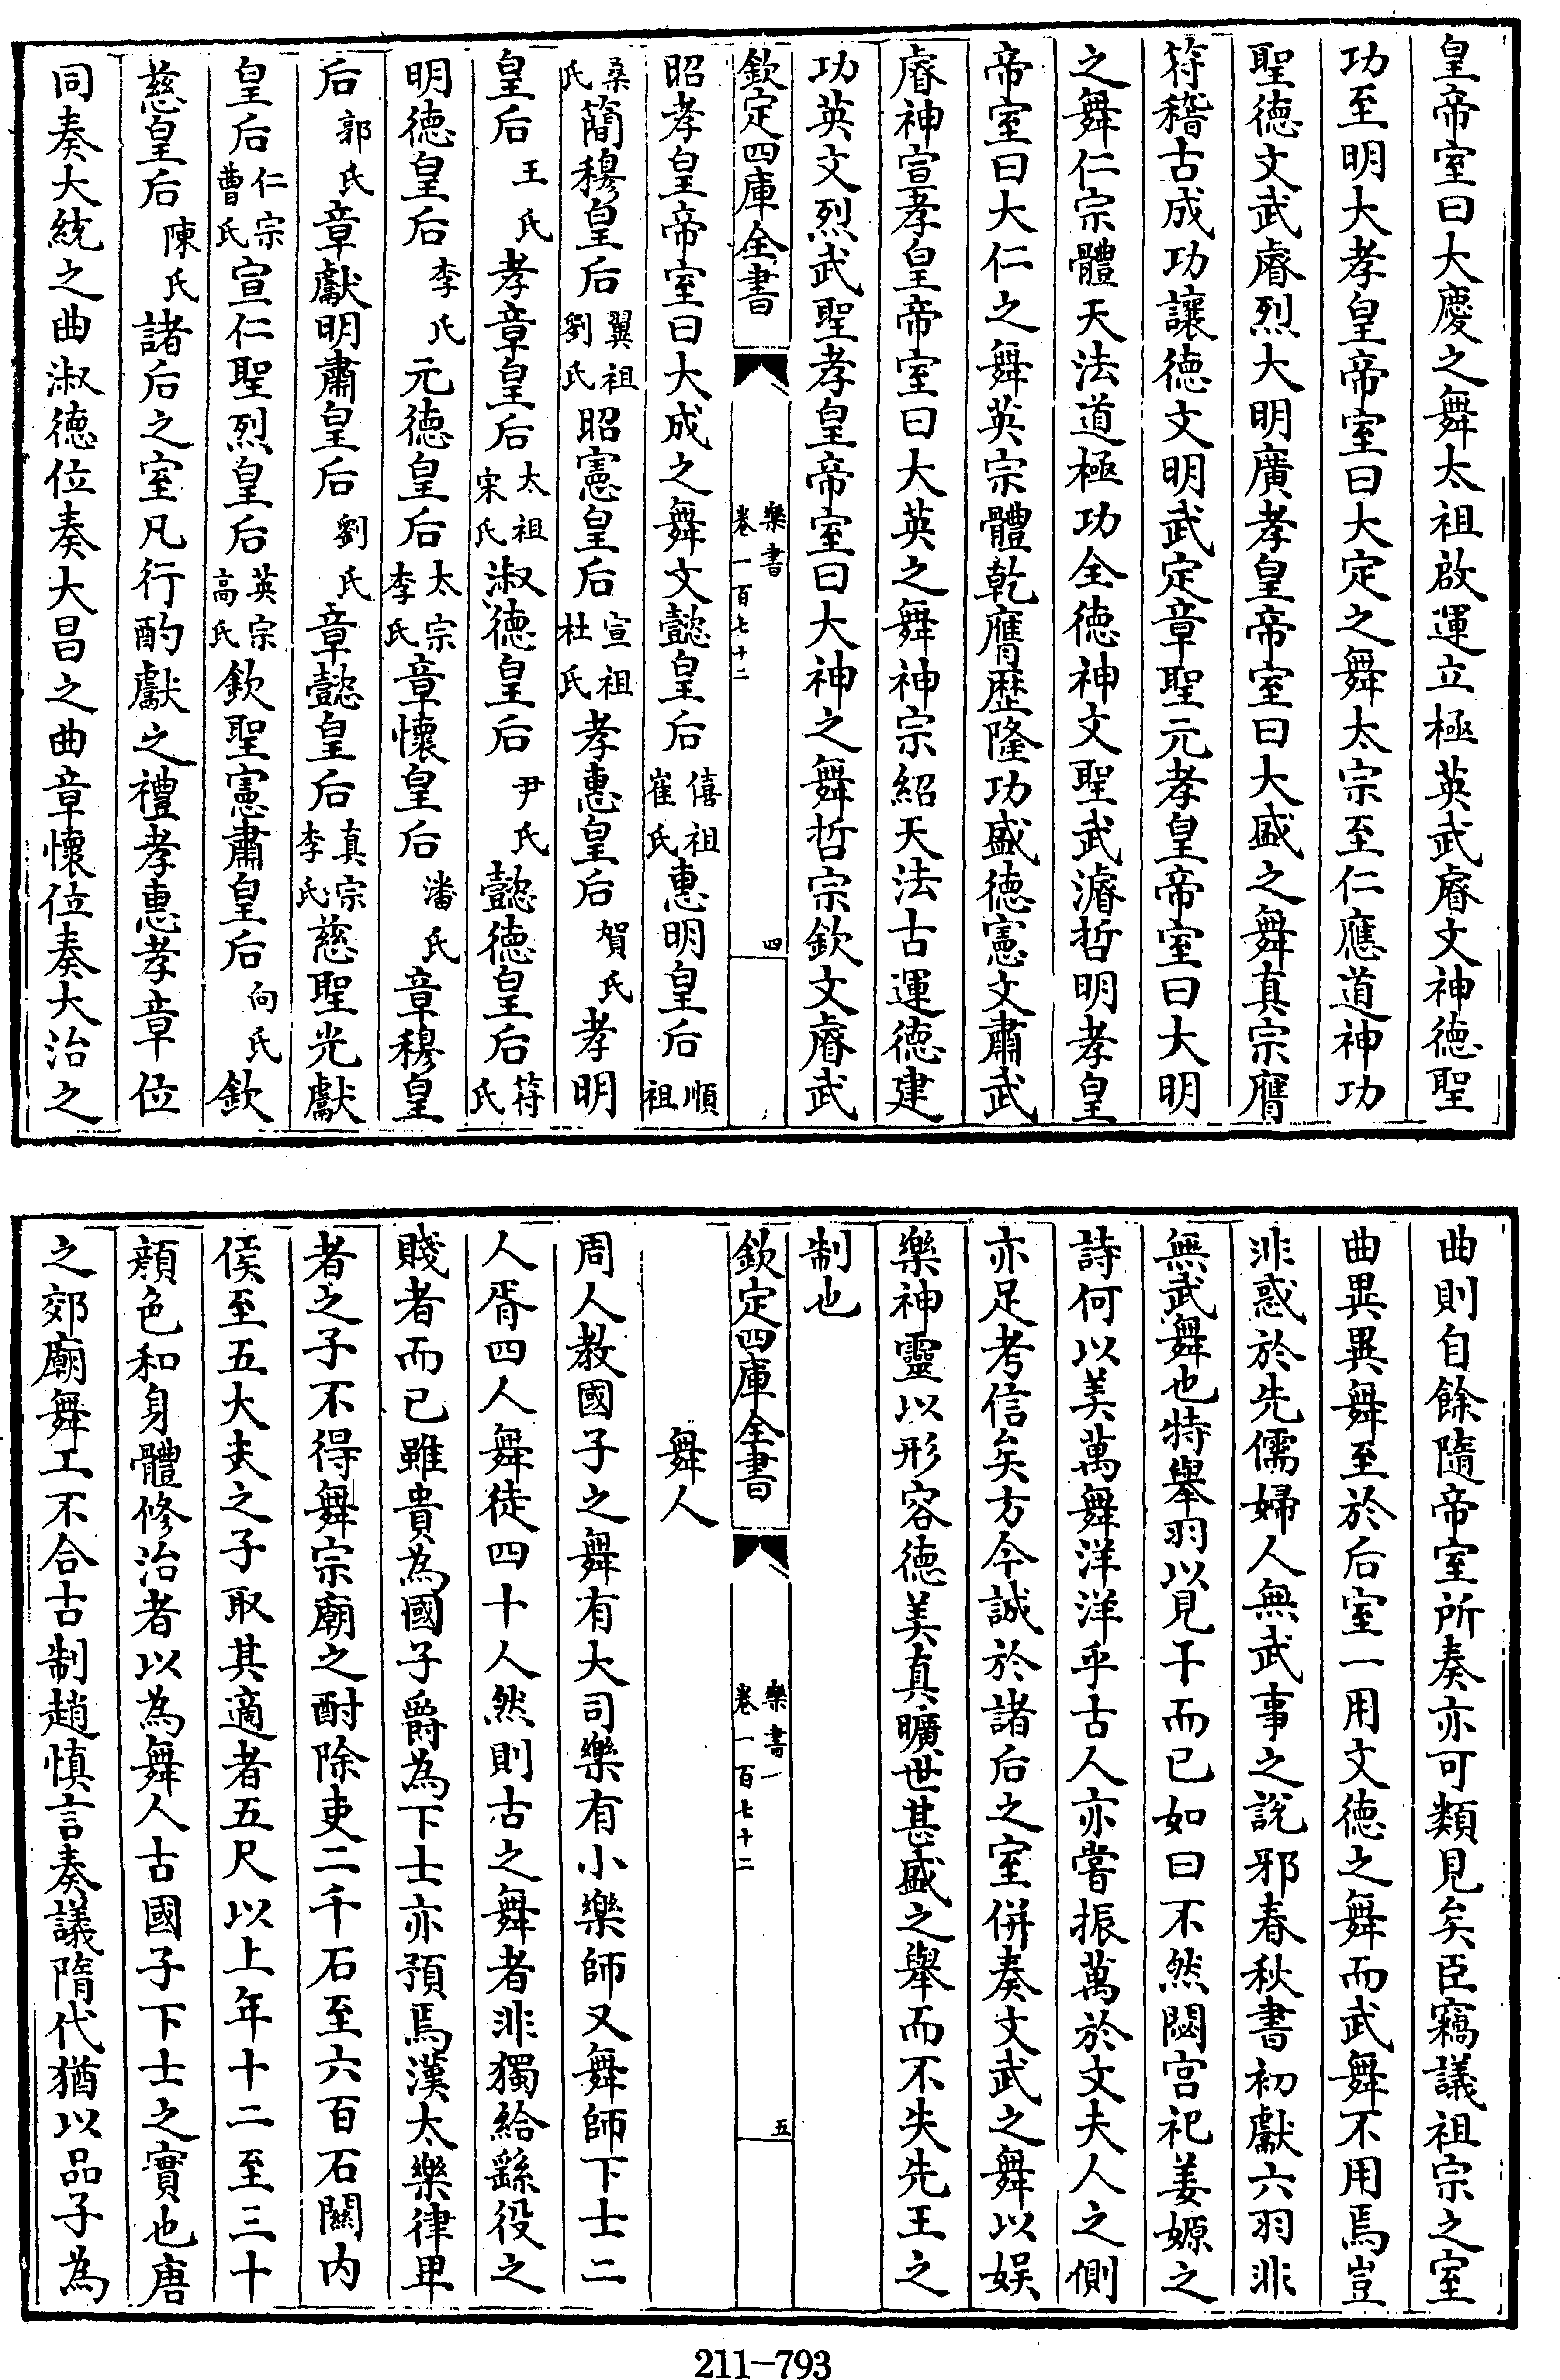 皇帝室曰大慶之舞太祖啟運立極英武睿文神德聖
功至明大孝皇帝室曰大定之舞太宗至仁應道神功
聖德文武睿烈大明廣孝皇帝室曰大盛之舞真宗膺
符稽古成功讓德文明武定章聖元孝皇帝室曰大明
之舞仁宗體天法道極功全德神文聖武濬哲明孝皇
帝室曰大仁之舞英宗體乾膺歷隆功盛德憲文肅武
睿神宣孝皇帝室曰大英之舞神宗紹天法古運德建
功英文烈武聖孝皇帝室曰大神之舞哲宗欽文睿武
欽定四庫全書 樂書 卷一百七十二 四
昭孝皇帝室曰大成之舞文懿皇后僖祖崔氏惠明皇后順祖
桑氏簡穆皇后翼祖劉氏昭憲皇后宣祖杜氏孝惠皇后賀氏孝明
皇后王氏孝章皇后太祖宋氏淑德皇后尹氏懿德皇后符氏
明德皇后李氏元德皇后太宗李氏章懷皇后潘氏章穆皇
后郭氏章獻明肅皇后劉氏章懿皇后真宗李氏慈聖光獻
皇后仁宗曹氏宣仁聖烈皇后英宗高氏欽聖憲肅皇后向氏欽
慈皇后陳氏諸后之室凡行酌獻之禮孝惠孝章位
同奏大統之曲淑德位奏大昌之曲章懷位奏大治之
曲則自餘隨帝室所奏亦可類見矣臣竊議祖宗之室
曲異異舞至於后室一用文德之舞而武舞不用焉豈
非惑於先儒婦人無武事之說邪春秋書初獻六羽非
無武舞也特舉羽以見干而已如曰不然閟宮祀姜嫄之
詩何以美萬舞洋洋乎古人亦嘗振萬於文夫人之側
亦足考信矣方今誠於諸后之室併奏文武之舞以娛
樂神靈以形容德美真曠世甚盛之舉而不失先王之
制也
欽定四庫全書 樂書 卷一百七十二 五
舞人
周人教國子之舞有大司樂有小樂師又舞師下士二
人胥四人舞徒四十人然則古之舞者非獨給繇役之
賤者而已雖貴為國子爵為下士亦預焉漢太樂律卑
者之子不得舞宗廟之酎除吏二千石至六百石關內
侯至五大夫之子取其適者五尺以上年十二至三十
顏色和身體修治者以為舞人古國子下士之實也唐
之郊廟舞工不合古制趙慎言奏議隋代猶以品子為
211-793